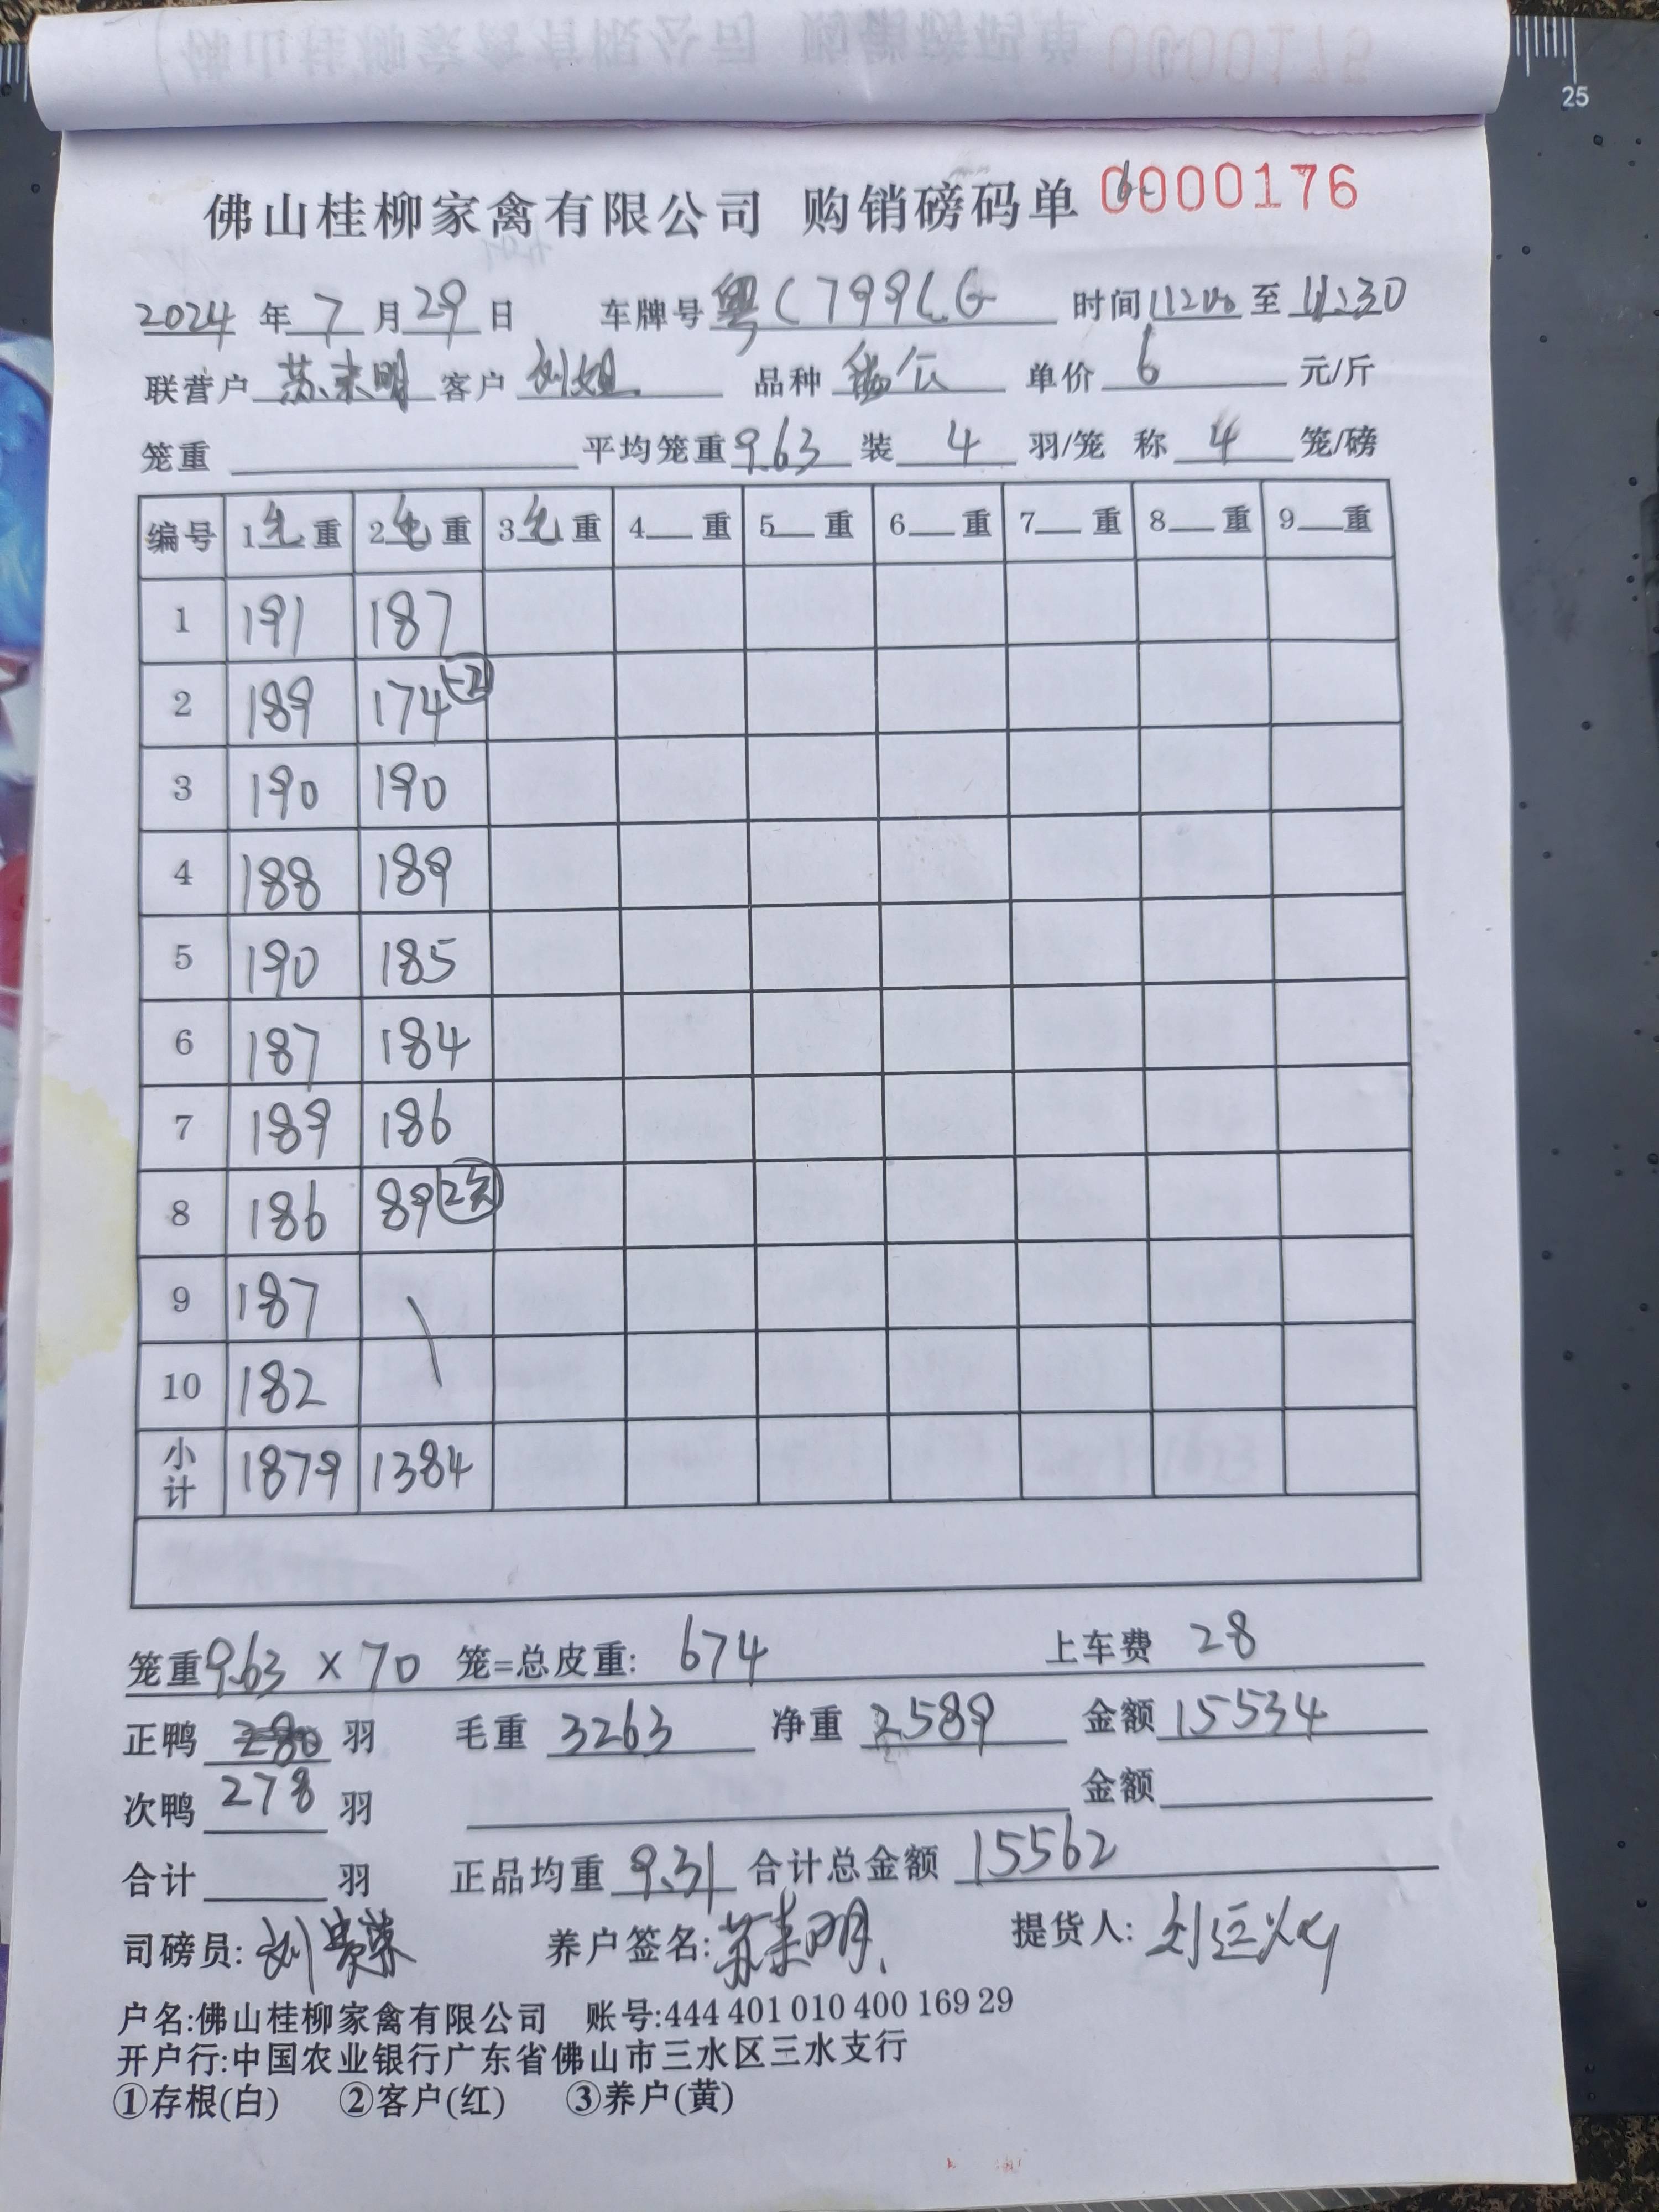 佛山桂柳家禽有限公司 购销磅码单 0000176
2024 年 7 月 29 日 车牌号 粤C799LG 时间 11:20 至 11:30
联营户 苏来明 客户 刘姐 品种 单价 6 元/斤
笼重 平均笼重 9.63 装 4 羽/笼 称 4 笼/磅
编号 1毛重 2毛重 3毛重 4 重 5 重 6 重 7 重 8 重 9 重
1 191 187
2 189 174 -2
3 190 190
4 188 189
5 190 185
6 187 184
7 189 186
8 186 89 2笼
9 187
10 182
小计 1879 1384
笼重 9.63 × 70 笼=总皮重: 674 上车费 28
正鸭 280 羽 毛重 3263 净重 2589 金额 15534
次鸭 278 羽 金额
合计 羽 正品均重 9.31 合计总金额 15562
司磅员: 养户签名: 苏来明 提货人:
户名:佛山桂柳家禽有限公司 账号:444 401 010 400 169 29
开户行:中国农业银行广东省佛山市三水区三水支行
①存根(白) ②客户(红) ③养户(黄)
25